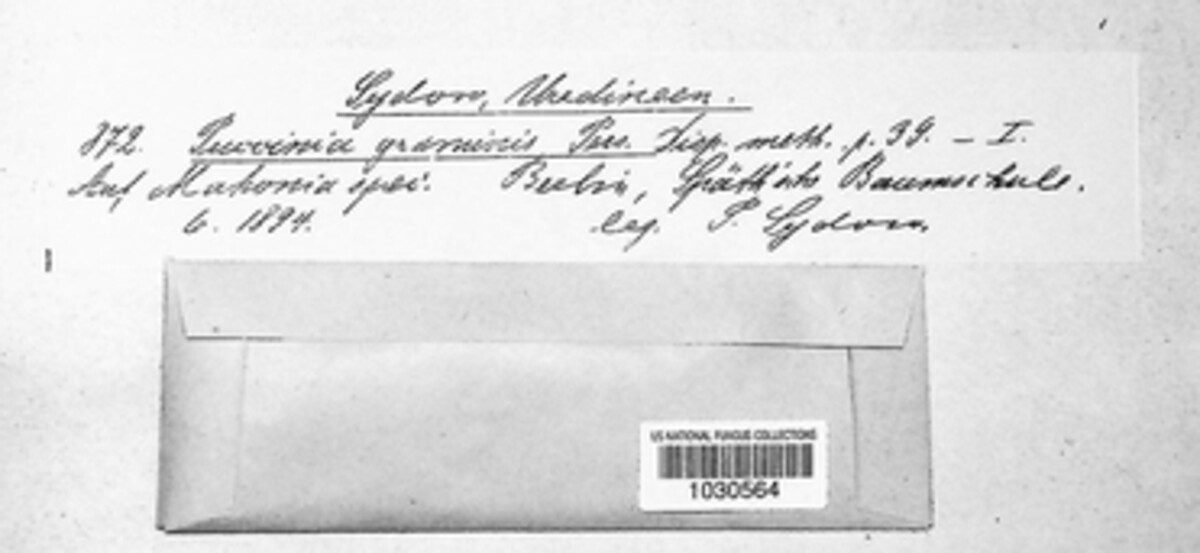 Sydow, Uredineen.
872. Puccinia graminis Pers. Disp. meth. p. 39. – I.
Auf Mahonia spei. Berlin, Späth'sche Baumschule.
6. 1894. leg. P. Sydow.
US NATIONAL FUNGUS COLLECTIONS
1030564